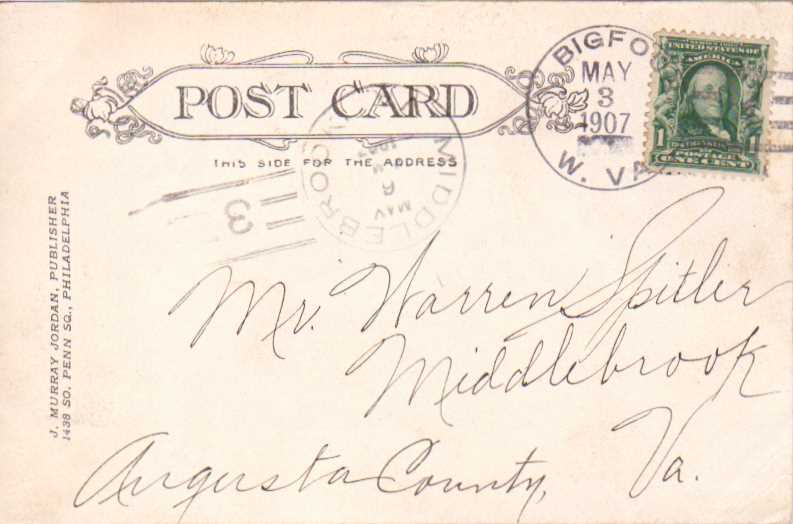 POST CARD
THIS SIDE FOR THE ADDRESS
BIGFO
MAY
3
1907
W. VA
UNITED STATES OF
AMERICA
1 1
POSTAGE
ONE CENT
MIDDLEBROO
MAY
6
3
J. MURRAY JORDAN, PUBLISHER
1438 SO. PENN SQ., PHILADELPHIA
Mr. Warren Spitler
Middlebrook
Augusta County, Va.